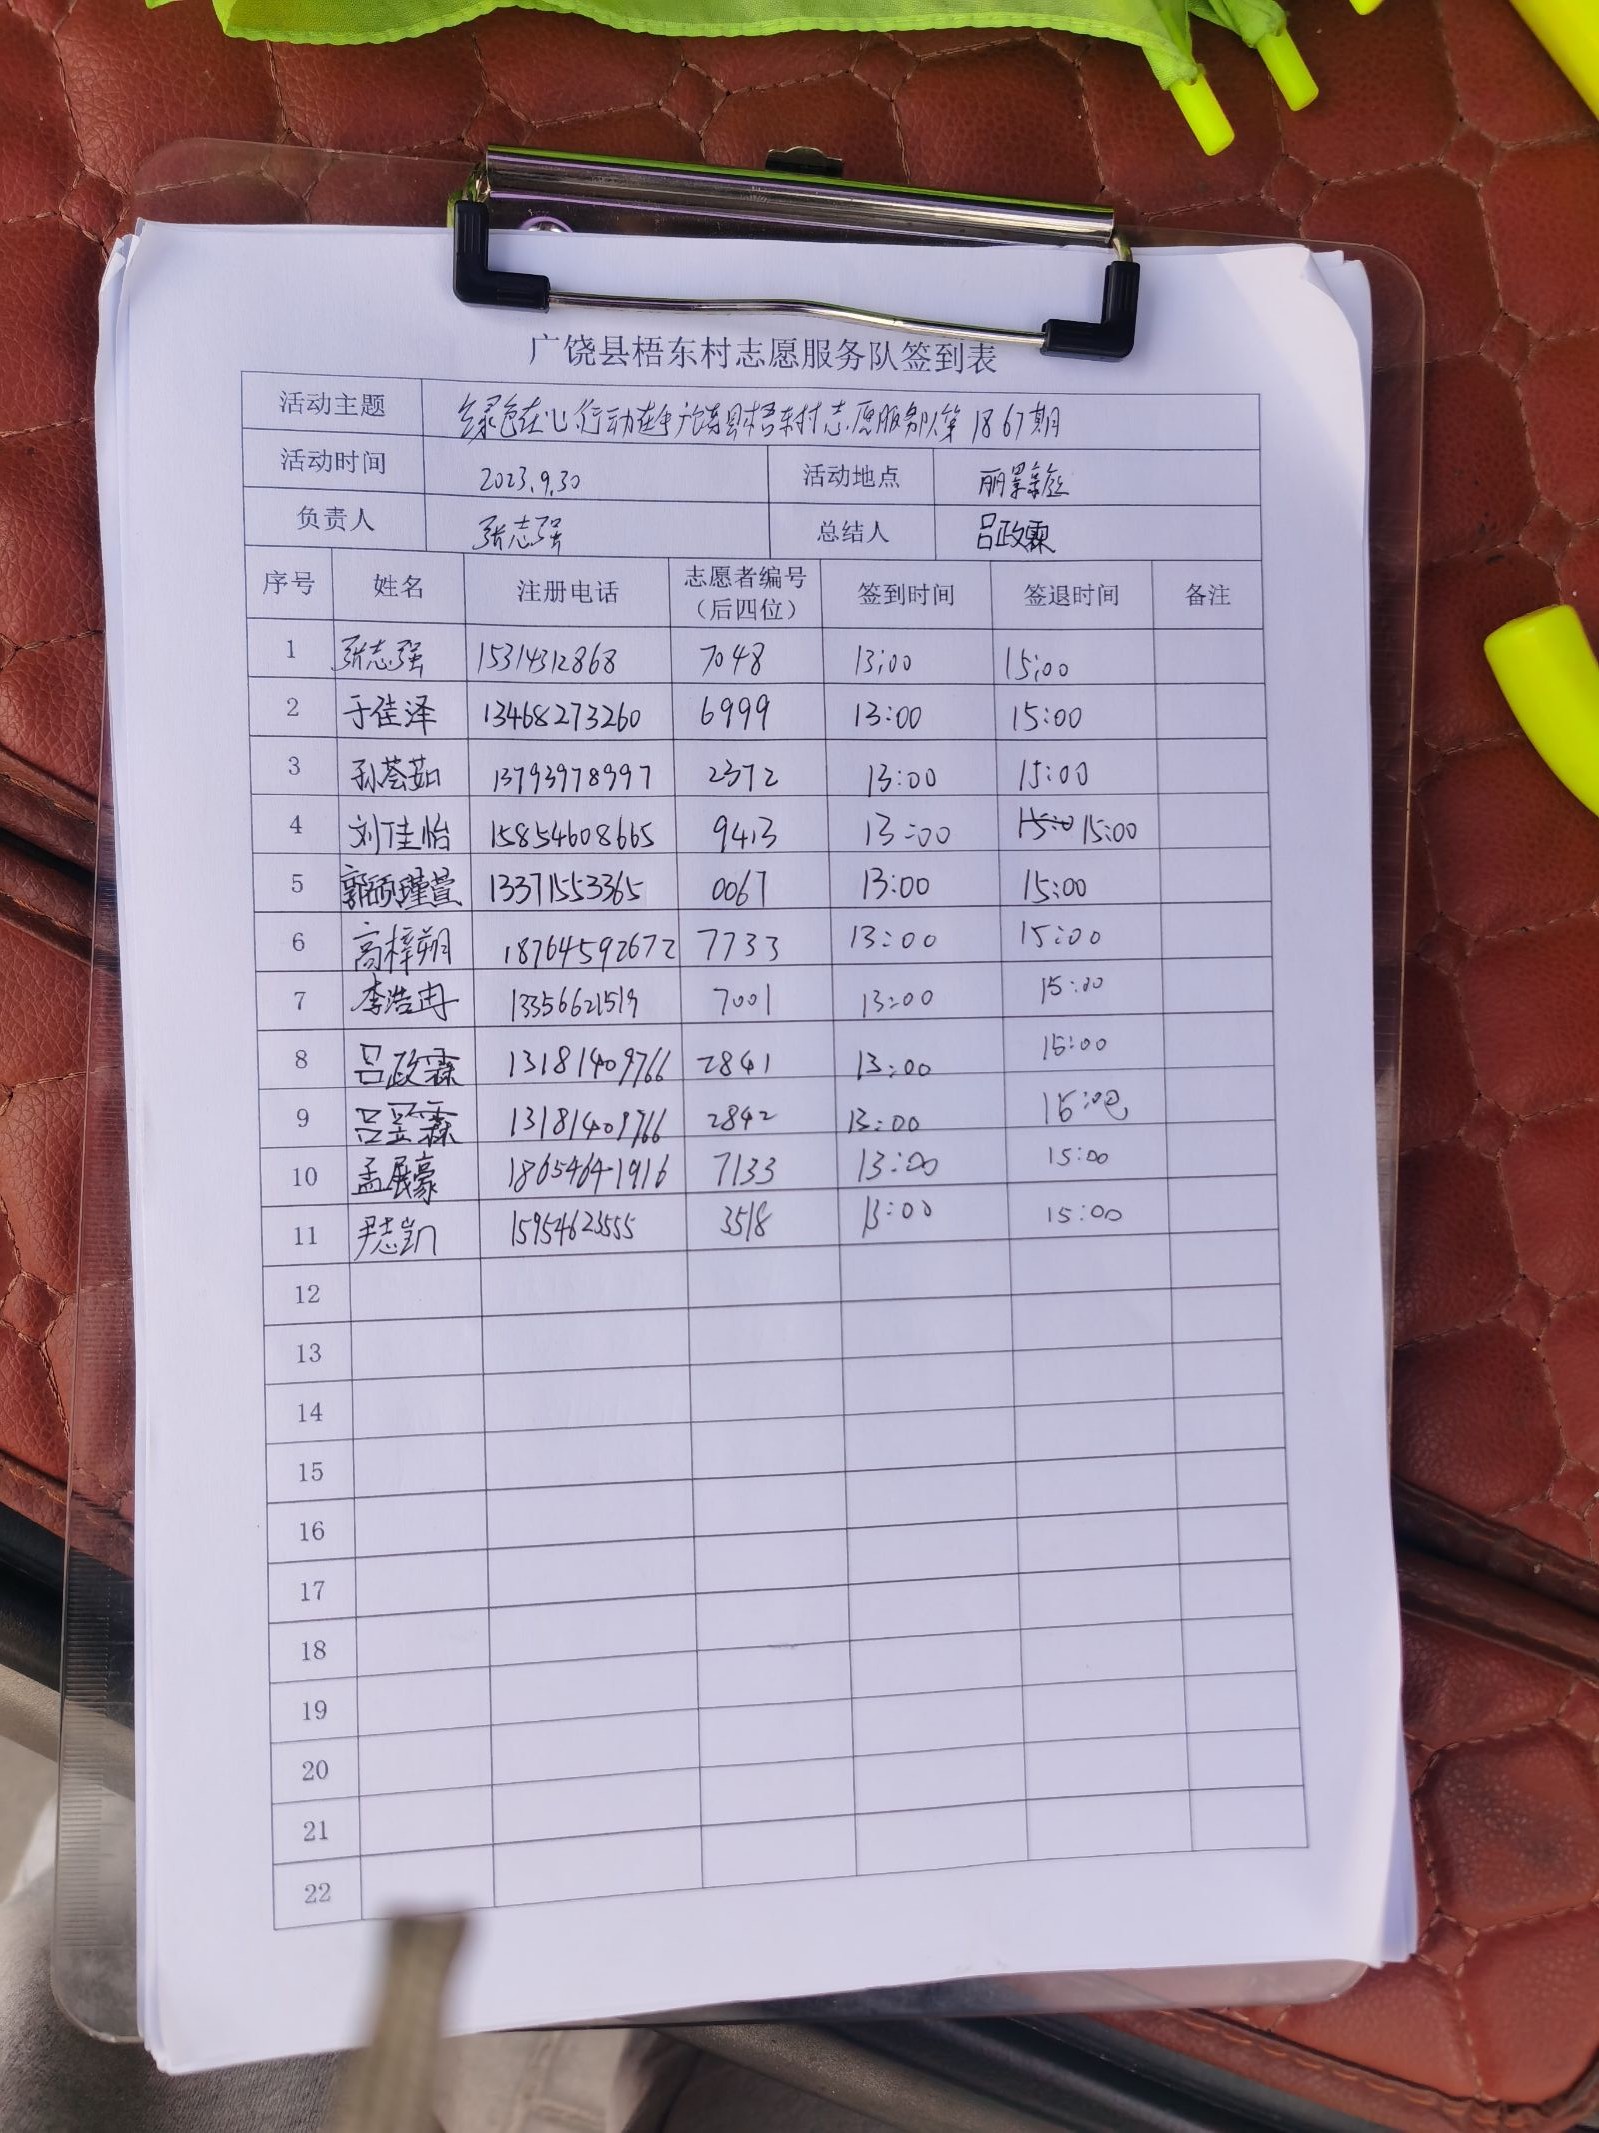 广饶县梧东村志愿服务队签到表
活动主题 绿色在心 行动在手广饶县梧东村志愿服务队第1867期
活动时间 2023.9.30 活动地点 丽景新庭
负责人 张志强 总结人 吕政霖
序号 姓名 注册电话 志愿者编号（后四位） 签到时间 签退时间 备注
1 张志强 15314312868 7048 13:00 15:00
2 于佳泽 13468273260 6999 13:00 15:00
3 孙荟茹 13793978997 2372 13:00 15:00
4 刘佳怡 15854608665 9413 13:00 15:00
5 郭硕瑾萱 13371553365 0067 13:00 15:00
6 高梓朔 18764592672 7733 13:00 15:00
7 李浩冉 13356621519 7001 13:00 15:00
8 吕政霖 13181409766 2841 13:00 15:00
9 吕昱霖 13181409766 2842 13:00
10 孟展豪 18654641916 7133 13:00 15:00
11 尹志凯 15954623555 3518 13:00 15:00
12
13
14
15
16
17
18
19
20
21
22